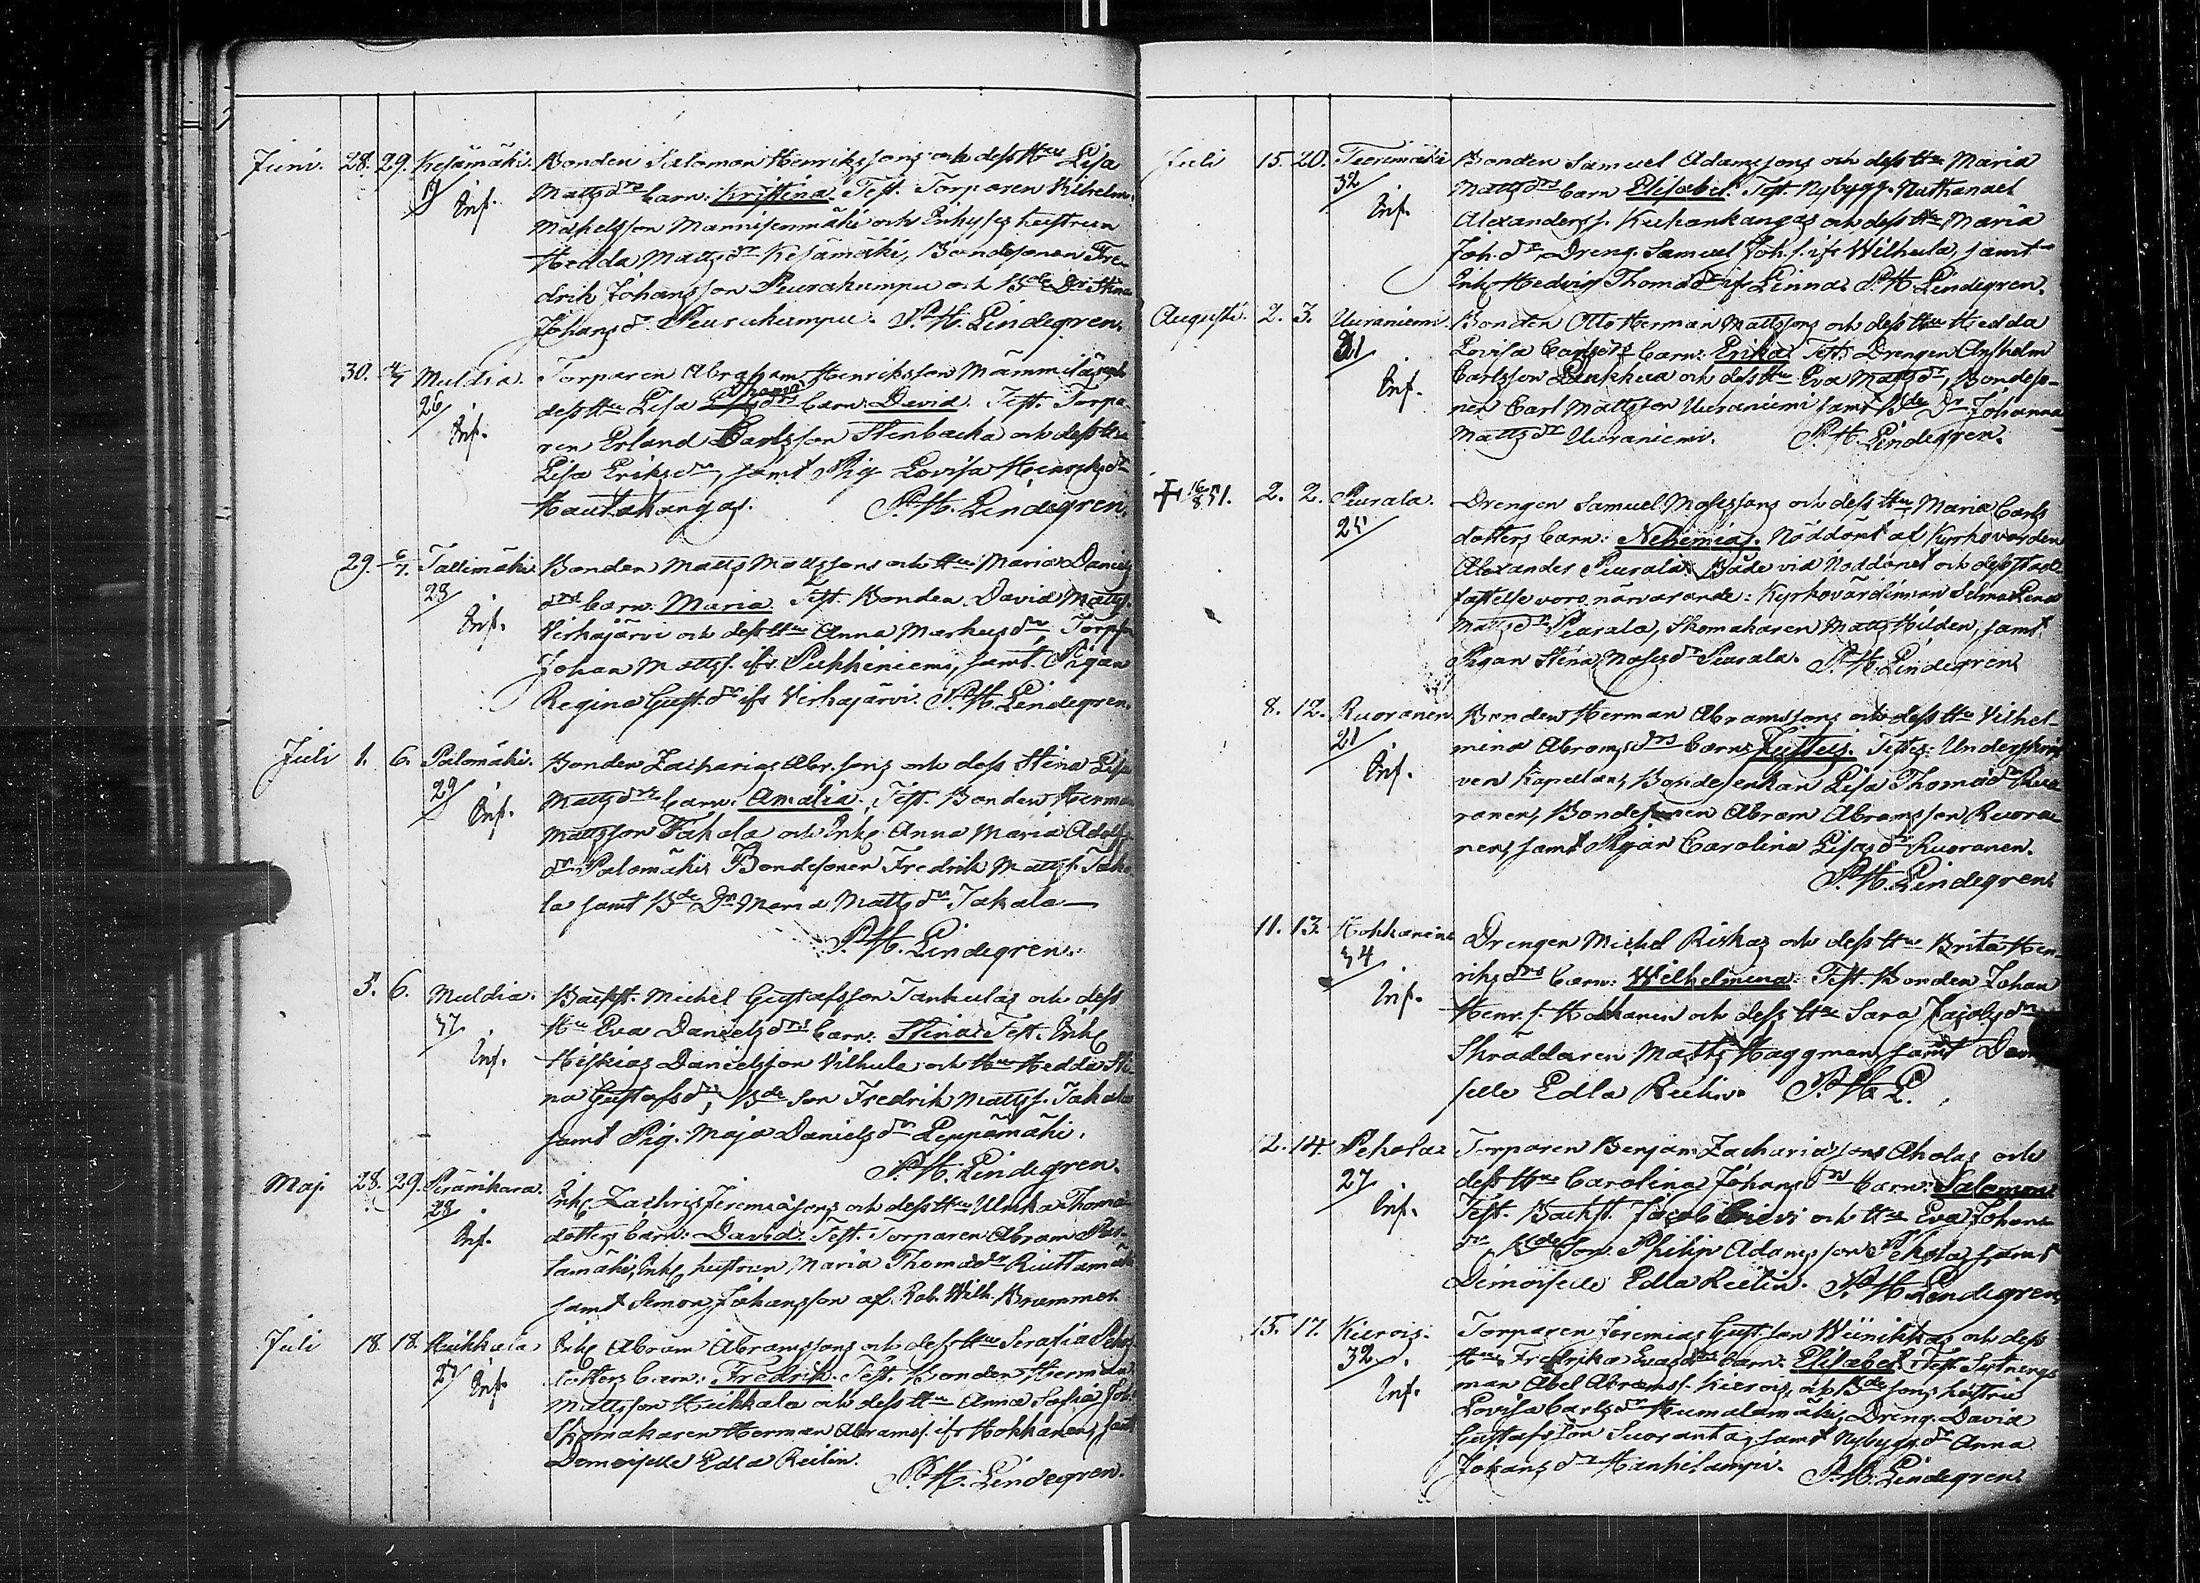 Juni. 28. 29. Kesämäki. Bonden Salomon Henrikssons och dess Hu Lisa
19/ Inf. Matts drs barn: Kristina. Test. Torparen Vilhelm
Mikelsson Mannisenmäki och Inhyses hustrun
Hedda Matts dr Kesämäki, Bondesonen Fre-
drik Johansson Peurakumpu och Bde Dr Stina
Johans dr Peurakumpu. P. H. Lindegren.
30. 4/7 Muldia. Torparen Abraham Henriksson Mämmilä och
26/ Inf. dess Hu Lisa barn: David. Test. Torpa-
ren Erland Carlsson Stenbacka och dess Hu
Lisa Eriks dr, samt Pig Lovisa Henriks dr
Hautakangas. P. H. Lindegren.
29. 6/7. Tallimäki Bonden Matts Mattssons och Hu Maria Daniels
23/ Inf. drs barn: Maria. Test. Bonden David Matts.
Virhajärvi och dess Hu Anna Markus dr Torp
Johan Matts. ifr. Pukkiniemi, samt Pigan
Regina Gust. dr ifr Virhajärvi. P. H. Lindegren.
Juli 1. 6. Palomäki. Bonden Zacharias Abr. sons och dess Stina Lisa
29/ Inf. Matts drs barn: Amalia. Test. Bonden Herman
Mattsson Takala och Inh. Anna Maria Adolfs
dr Palomäki, Bondesonen Fredrik Matts. Taka-
la samt Bde Dr Maria Matts dr Takala
P. H. Lindegren.
5. 6. Muldia. Backst. Michel Gustafsson Tankulas och dess
37/ Inf. Hu Eva Daniels drs barn: Stina. Test. Inh.
Hiskias Danielsson Vilhula och Hu Hedda Sti-
na Gustafs dr, Bde son Fredrik Matts. Takala
samt Pig. Maja Daniels dr Leppämäki.
P. H. Lindegren.
Maj. 28. 29. Perämikara. Inh. Zachris Jeremiæsons och dess Hu Ulrika Thomæ
28/ Inf. dotters barn: David. Test. Torparen Abram
lamäki, Inh. hustrun Maria Thomæ dr Riuttamäki
samt Simon Johansson af Rob. Wilh. Brummer
Juli 18. 18. Heikkala Inh. Abram Abramssons och dess Hu Serafia
27/ Inf. dotters barn: Fredrik. Test. Bonden Herman
Mattsson Heikkala och dess Hu Anna Sofia Joh.
Skomakaren Herman Abrams. ifr Hokkanen, samt
Demoiselle Edla Reilin. P. H. Lindegren.
Juli 15. 20. Teerimäki Bonden Samuel Adamssons och dess Hu Maria
32/ Inf. Matts drs barn Elisabet. Test. Nybygg. Nathanael
Alexanders. Kuhankangas och dess Hu Maria
Joh. dr, Dreng. Samuel Joh. s. ifr Wilhula, samt
Inh. Hedvig Thomæ dr ifr Linna. P. H. Lindegren.
Augusti. 2. 3. Uuraniemi. Bonden Otto Herman Mattssons och dess Hu Hedda
31/ Inf. Lovisa Carls drs barn: Erika. Test. Drengen Anshelm
Carlsson och dess Hu Eva Matts dr, Bondeso-
nen Carl Mattsson Uuraniemi samt Bde Dr Johanna
Matts dr Uuraniemi. P. H. Lindegren.
† 16/8 51. 2. 2. Peurala. Drengen Samuel Mosessons och dess Hu Maria Carls
25/ dotters barn: Nehemias. Nöddöpt af Kyrkovärden
Alexander Peurala. Både vid Nöddopet och dess stad-
fästelse voro närvarande: Kyrkovärdinnan Selma Lena
Matts dr Peurala, Skomakaren Matts Hilden, samt
Pigan Stina Moses dr Peurala. P. H. Lindegren.
8. 12. Ruoranen Bonden Herman Abramssons och dess Hu Vilhel-
21/ Inf. mina Abrams drs barn: Testes: Underskrif-
ven Kapellans, Bondeenkan Lisa Thomæ dr Ruo-
ranen, Bondesonen Abram Abramsson Ruora-
nen, samt Pigan Carolina Lisas dr Ruoranen.
P. H. Lindegren.
11. 13. Hokkanen Drengen Michel Riskas och dess Hu Brita Hen-
34/ Inf. riks drs barn: Wilhelmina. Test. Bonden Johan
Henr. s. Hokkanen och dess Hu Sara Jacobs dr
Skraddaren Matts Haggman, samt Demoi-
selle Edla Reilin. P. H. L.
12. 14. Pekola Torparen Benjam. Zachariæsons Aholas och
27/ Inf. dess Hu Carolina Johans drs barn: Salomon.
Test. Backst. Jacob och Hu Eva Johans
dr Bde Son. Philip Adamsson Pekola, samt
Demoiselle Edla Reilin. P. H. Lindegren.
15. 17. Kierois. Torparen Jeremias Gust. son Wiinikkas och dess
32/ Inf. Hu Fredrika Evas drs barn: Elisabet. Test. Sytnings-
man Abel Abrams. Kierois, och Bde sons hustru
Lovisa Carls dr Humalamäki, Dreng. David
Gustafsson Suoranta, samt Nybygg. dr Anna
Johans dr Hanhilampi. P. H. Lindegren.